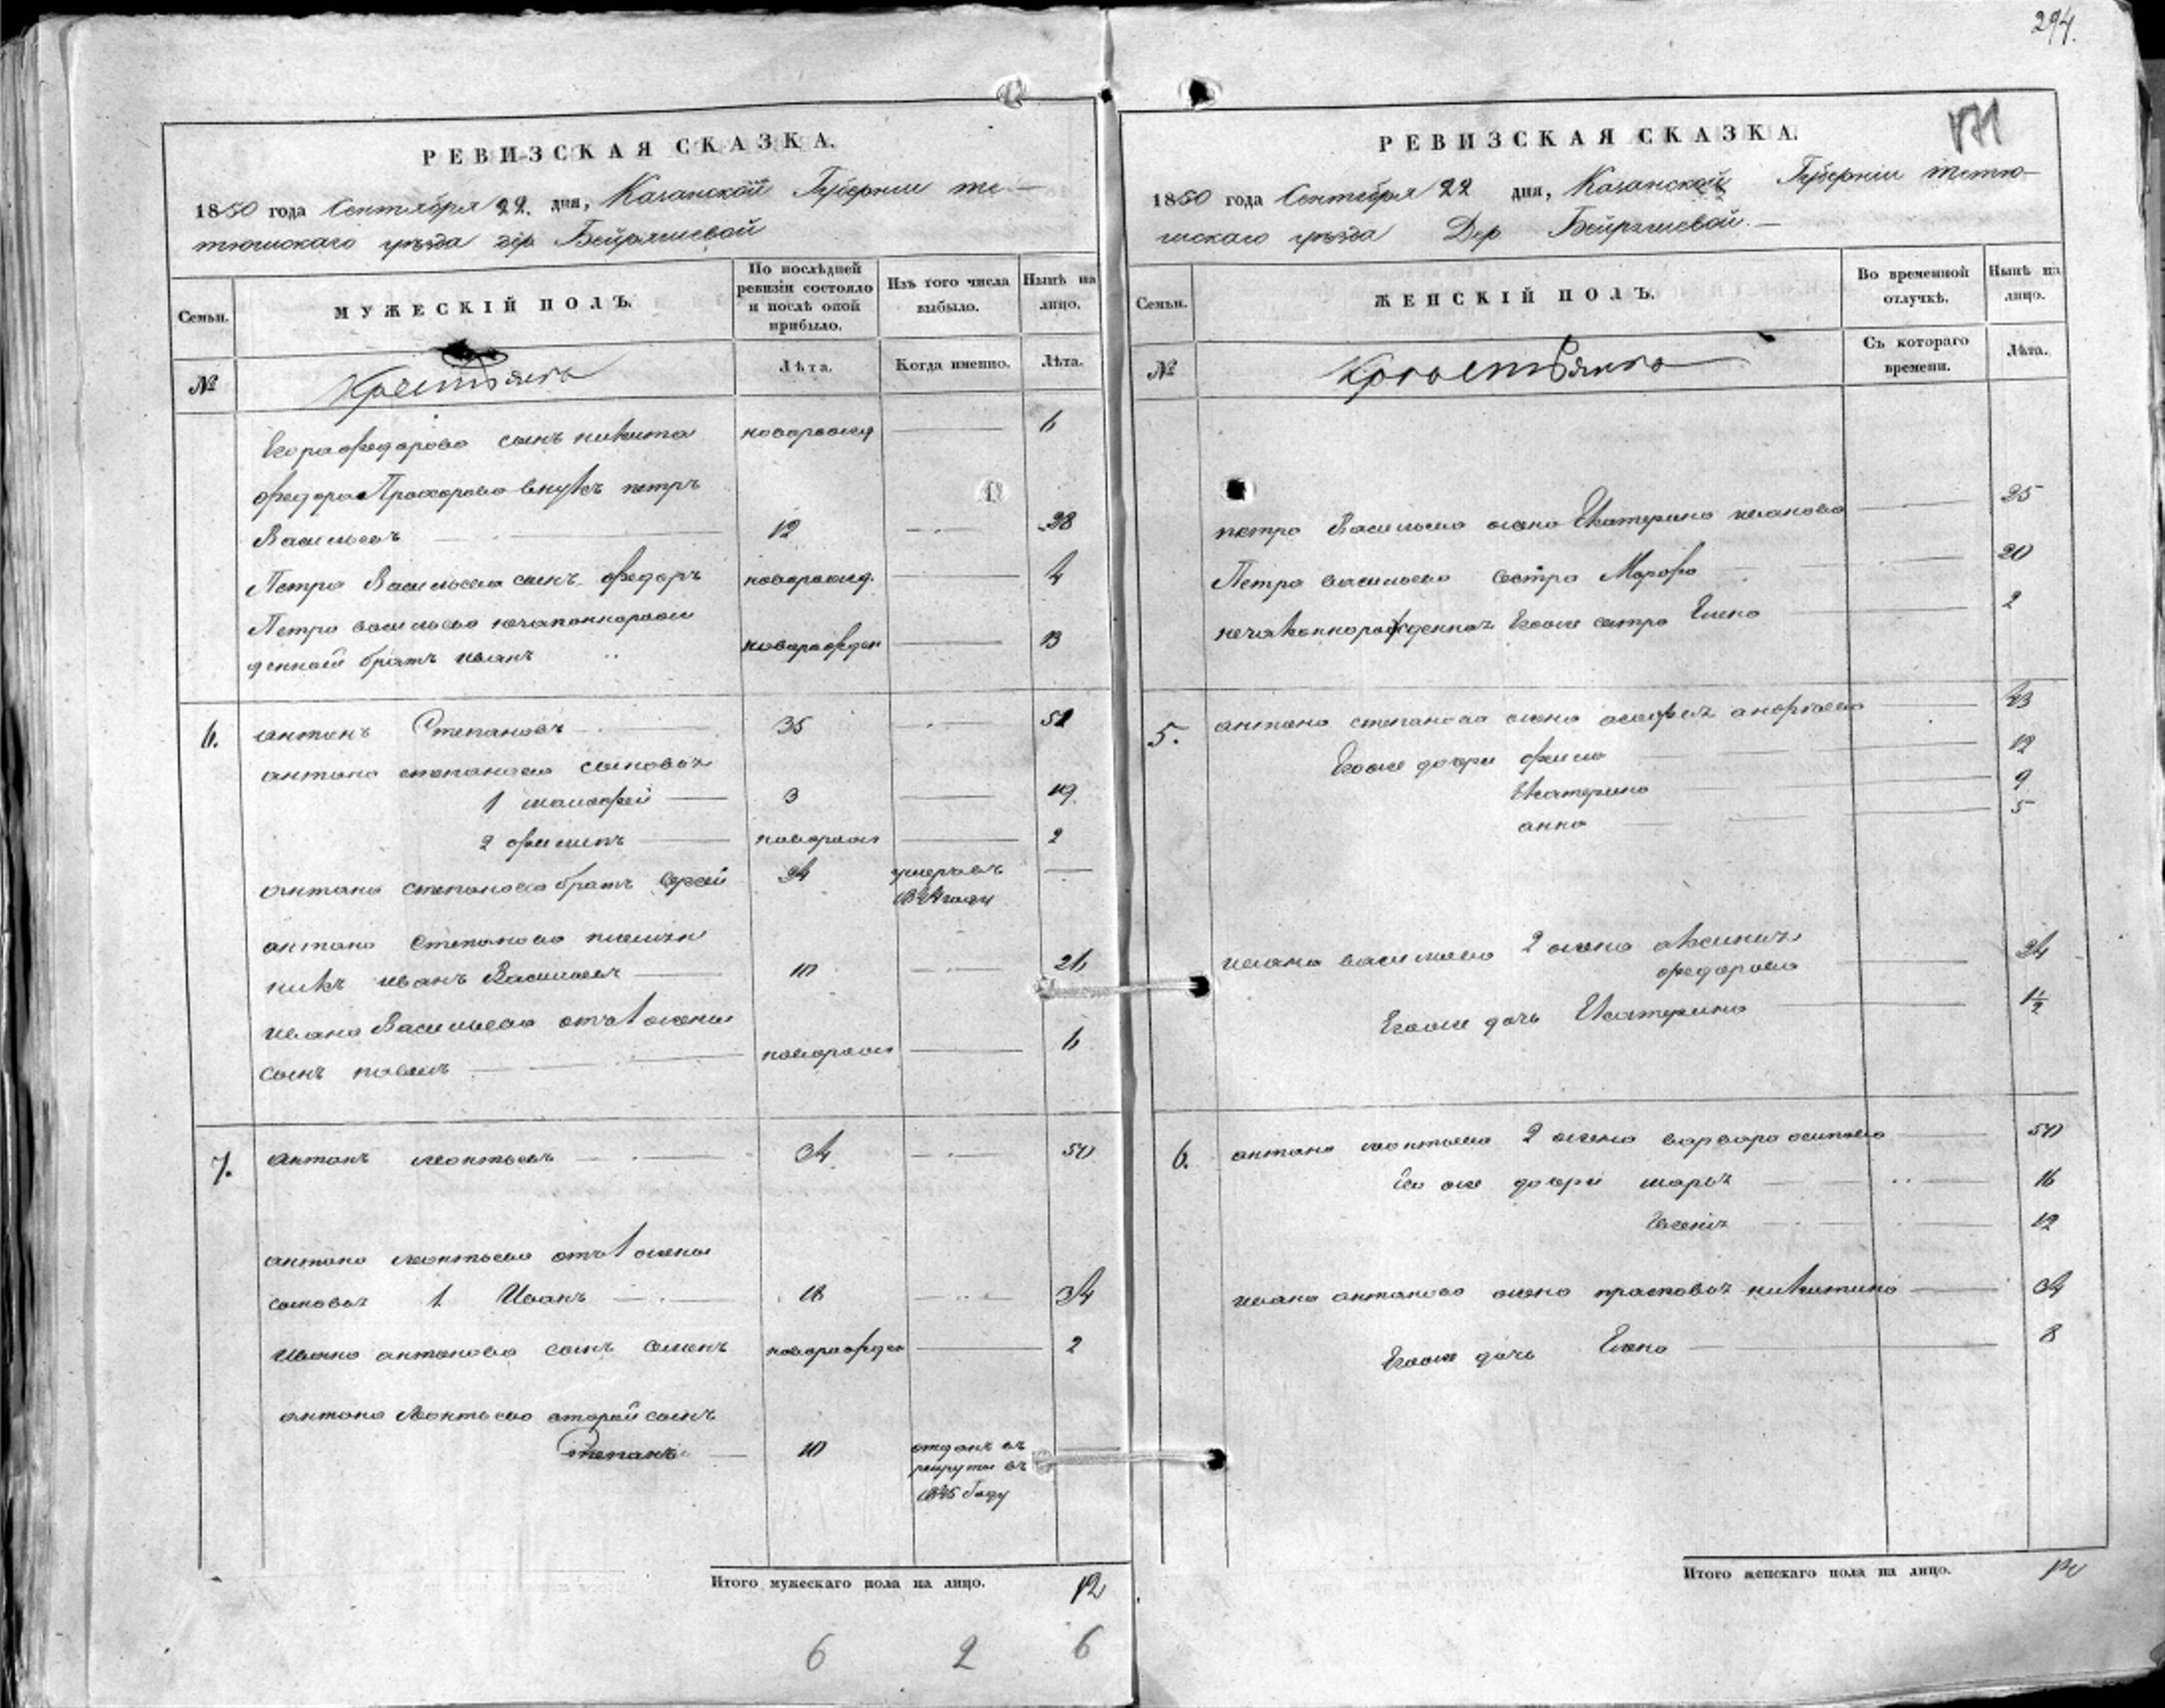 294.
171
РЕВИЗСКАЯ СКАЗКА.
1850 года Сентября 22. дня, Казанской Губернии те-
тюшскаго уѣзда дер Бейряшевой
Семьи.
МУЖЕСКІЙ ПОЛЪ.
По послѣдней ревизіи состояло и послѣ оной прибыло.
Изъ того числа выбыло.
Нынѣ на лицо.
№
Крестьяне
Лѣта.
Когда именно.
Лѣта.
Егора федорова сынъ никита новорожд 6
федора Прохорова внукъ петръ
Васильевъ 12 28
Петра Васильева сынъ федоръ новорожд. 4
Петра васильева незаконнорож
денной братъ иванъ новорожден 13
6. антонъ Степановъ 35 51
антона степанова сыновья
1 матвфей 3 19
2 филипъ новорож 2
антона степанова братъ сергей 24 умеръ въ
1844 годи
антона Степанова племян
никъ иванъ Васильевъ 10 26
ивана Васильева отъ 1 жены
сынъ павелъ новорож 6
7. антонъ леонтьевъ 34 50
антона леонтьева отъ 1 жены
сыновья 1. Иванъ 18 34
ивана антонова сынъ семенъ новорожден 2
антона Леонтьева второй сынъ
Степанъ 10 отданъ въ
рекруты въ
1845 Году
Итого мужескаго пола на лицо. 12
6 2 6
РЕВИЗСКАЯ СКАЗКА.
1850 года Сентебря 22 дня, Казанской Губерніи тетю-
шскаго уѣзда Дер Бейряшевой.
Семьи.
ЖЕНСКІЙ ПОЛЪ.
Во временной отлучкѣ.
Нынѣ на лицо.
№
Крестьянъ
Съ котораго времени.
Лѣта.
петра Васильева жена Екатерина иванова 25
Петра васильева сестра Марфа 20
незаконнорожденная Егоже сестра Елена 2
5. антона степанова жена андреева 43
Егоже дочери 12
Екатерина 9
анна 5
ивана васильева 2 жена аксинья
федорова 24
Егоже дочь Екатерина 1½
6. антона леонтьева 2 жена варвара осипова 50
Его же дочери марья 16
12
ивана антонова жена прасковья никитина 34
Егоже дочь Елена 8
Итого женскаго пола на лицо.